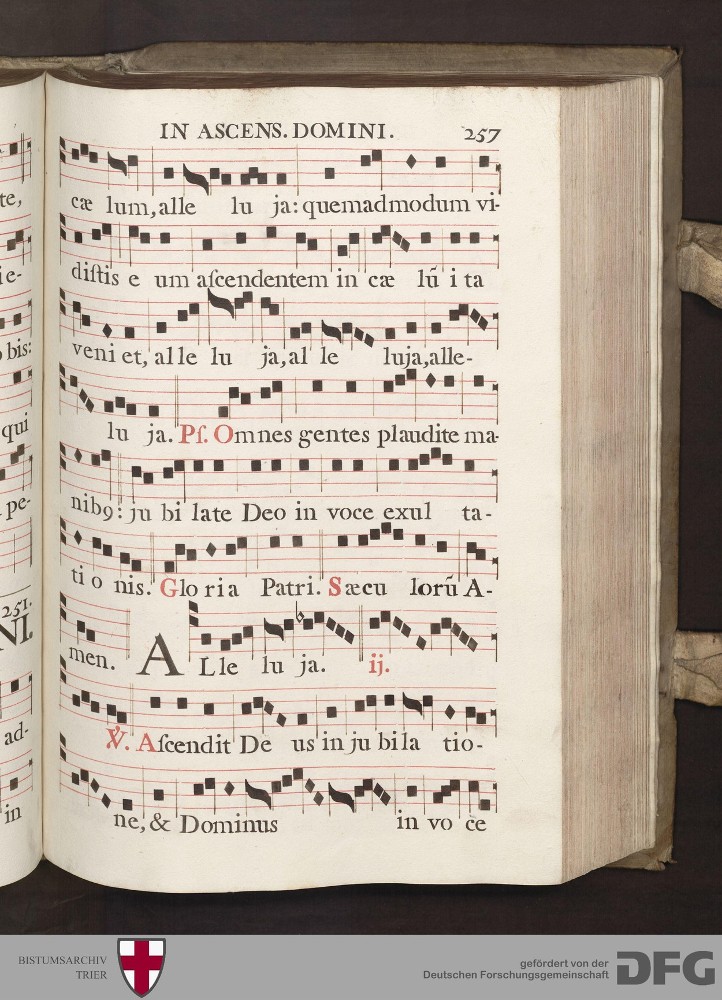 IN ASCENS. DOMINI. 257
cæ lum, alle lu ja: quemadmodum vi-
diſtis e um aſcendentem in cæ lũ i ta
veni et, alle lu ja, al le luja, alle-
lu ja. Pſ. Omnes gentes plaudite ma-
nib9: ju bi late Deo in voce exul ta-
ti o nis. Gloria Patri. Sæcu lorũ A-
men. ALle lu ja. ij.
℣. Aſcendit De us in ju bila tio-
ne, & Dominus in vo ce
te,
ie-
bis:
qui
pe-
251.
NI.
ad-
in
BISTUMSARCHIV
TRIER
gefördert von der
Deutschen Forschungsgemeinschaft
DFG